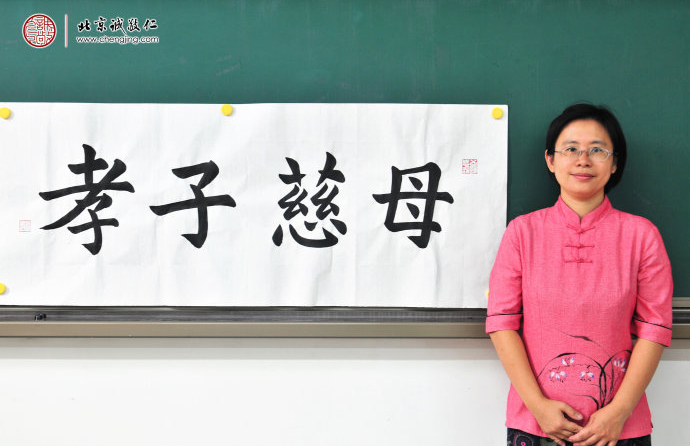 北京诚敬仁
www.chengjing.com
母慈子孝